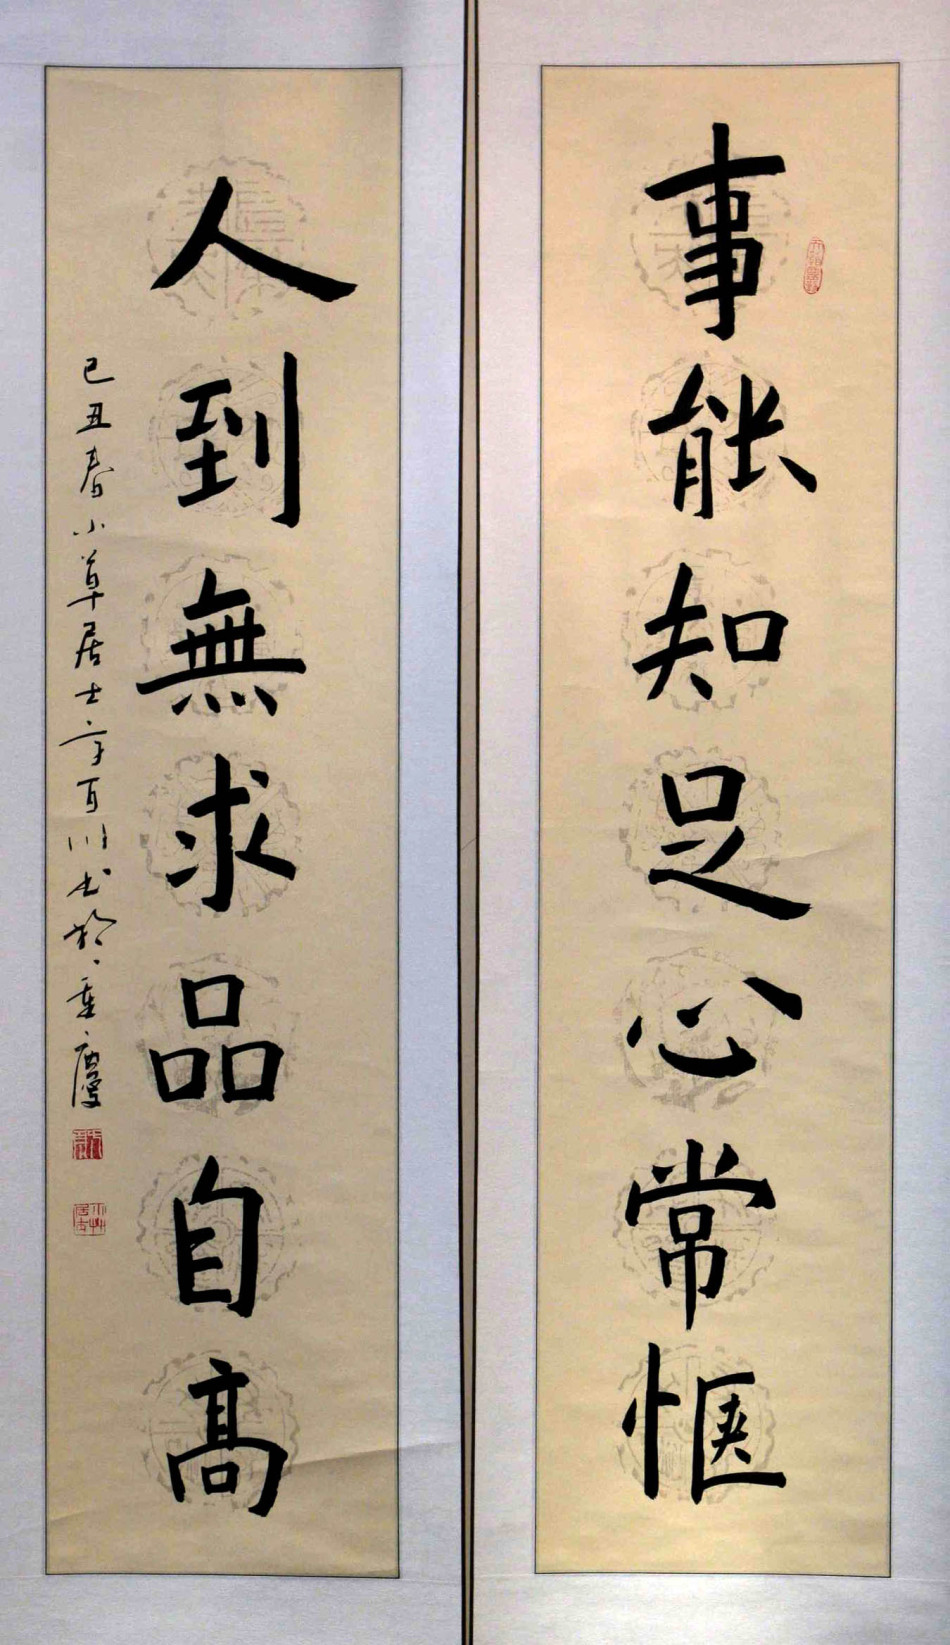 事能知足心常惬
人到無求品自高
己丑春小草居士辛百川书於重慶